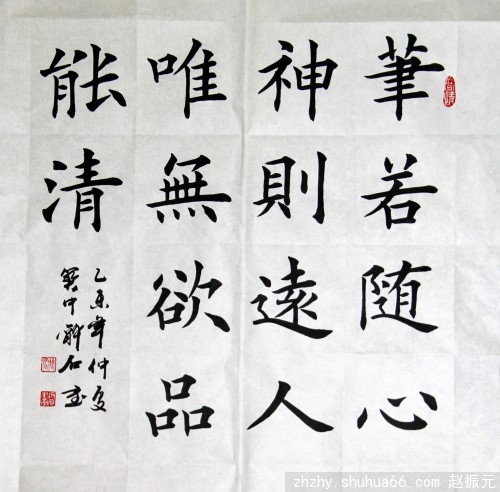 筆若随心
神則遠人
唯無欲品
能清
乙未年仲夏
zhzhy.shuhua66.com 赵振元